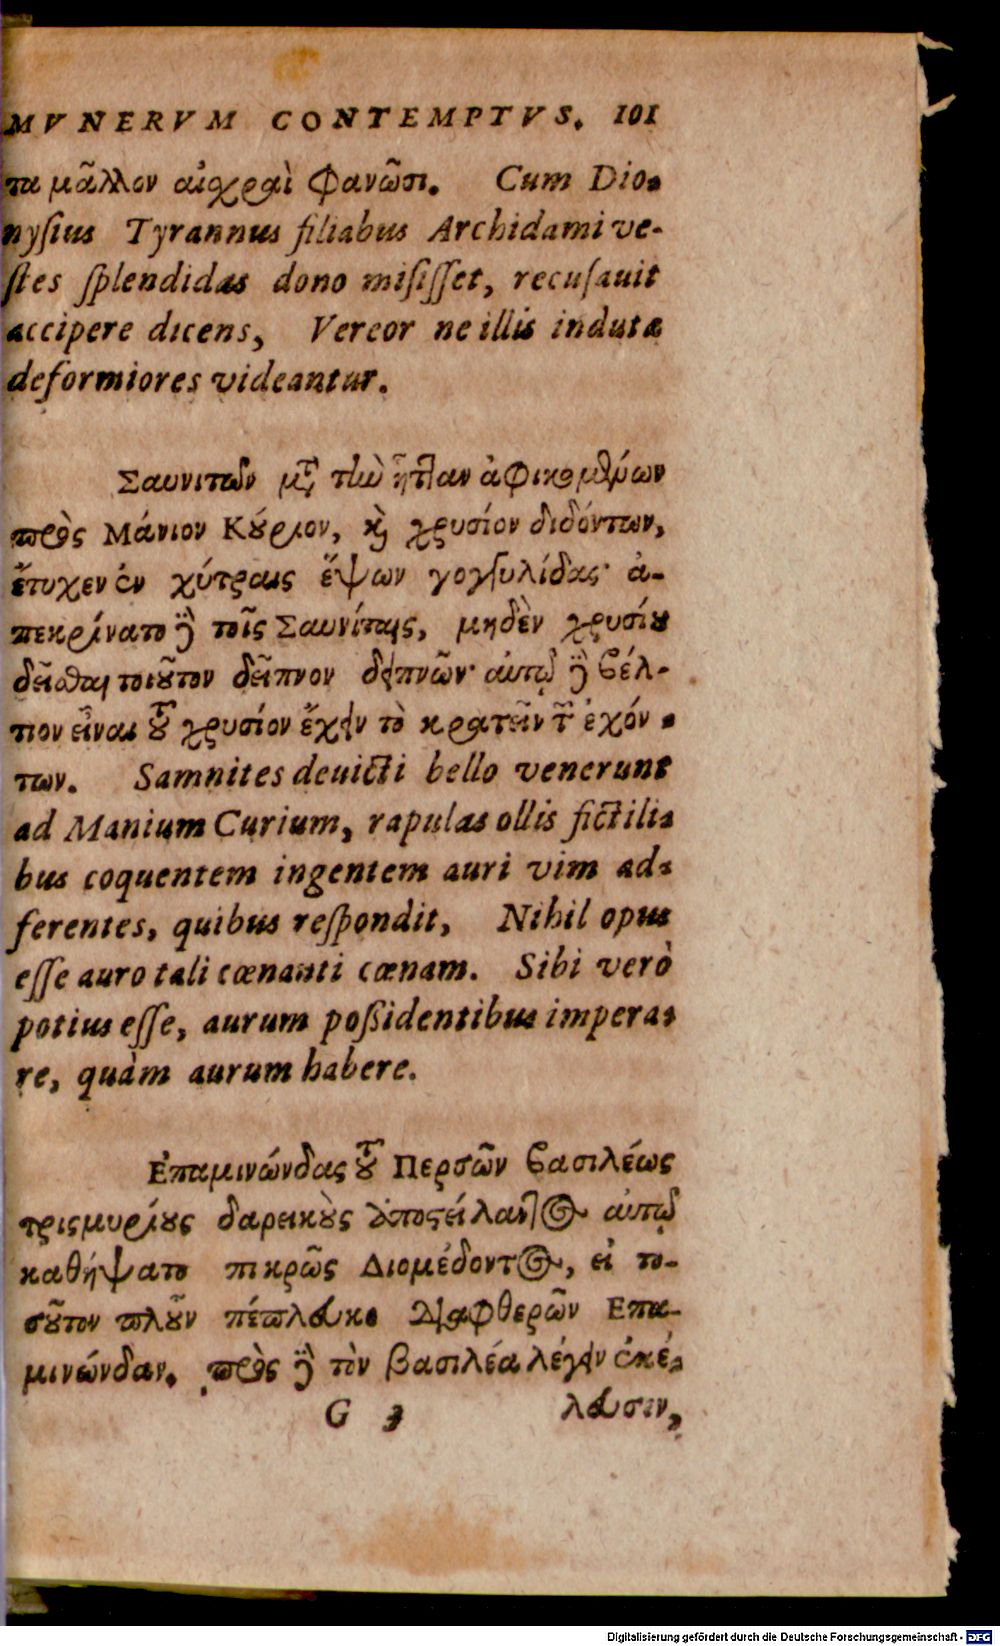 MVNERVM CONTEMPTVS. 101
τα μᾶλλον αἰσχραὶ φανῶσι. Cum Dio-
nyſius Tyrannus filiabus Archidami ve-
ſtes ſplendidas dono miſiſſet, recuſauit
accipere dicens, Vereor ne illis indutæ
deformiores videantur.
Σαυνιτῶν μετὰ τὴν ἧτταν ἀφικομένων
πρὸς Μάνιον Κούριον, καὶ χρυσίον διδόντων,
ἔτυχεν ἐν χύτραις ἕψων γογγυλίδας· ἀ-
πεκρίνατο δὲ τοῖς Σαυνίταις, μηδὲν χρυσίου
δεῖσθαι τοιοῦτον δεῖπνον δειπνῶν· αὐτῷ δὲ βέλ-
τιον εἶναι τοῦ χρυσίον ἔχειν τὸ κρατεῖν τῶν ἐχόν-
των. Samnites deuicti bello venerunt
ad Manium Curium, rapulas ollis fictili-
bus coquentem ingentem auri vim ad-
ferentes, quibus reſpondit, Nihil opus
eſſe auro tali cœnanti cœnam. Sibi verò
potius eſſe, aurum poßidentibus impera-
re, quàm aurum habere.
Ἐπαμινώνδας τοῦ Περσῶν βασιλέως
τρισμυρίους δαρεικοὺς ἀποστείλαντος αὐτῷ
καθήψατο πικρῶς Διομέδοντος, εἰ το-
σοῦτον πλοῦν πέπλευκε διαφθερῶν Επα-
μινώνδαν. πρὸς δὲ τὸν βασιλέα λέγειν ἐκέ-
G 3 λευσεν,